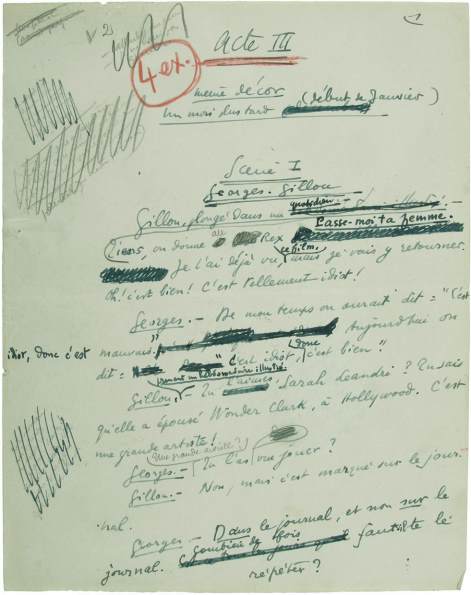 1
V 2)
Acte III
4 ex.
même décor (début de Janvier)
Un mois plus tard
Scène I
Georges. Gillou
Gillou, plongé dans un quotidien
Tiens, on donne au Rex "Passe-moi ta femme.
Je l'ai déjà vu ce film, mais je vais y retourner.
Oh! c'est bien! C'est tellement idiot!
Georges.- De mon temps on aurait dit = "C'est
idiot, donc c'est mauvais." Aujourd'hui on
dit = "C'est idiot, donc c'est bien"
Gillou, prenant un hebdomadaire illustré.- Tu l'aimes, Sarah Leandre? Tu sais
qu'elle a épousé Wonder Clark, à Hollywood. C'est
une grande artiste!
Georges.- Une grande artiste? Tu l'as vu jouer?
Gillou.- Non, mais c'est marqué sur le jour-
nal.
Georges.- Dans le journal, et non sur le
journal. Combien de fois faut-il te le
répéter?